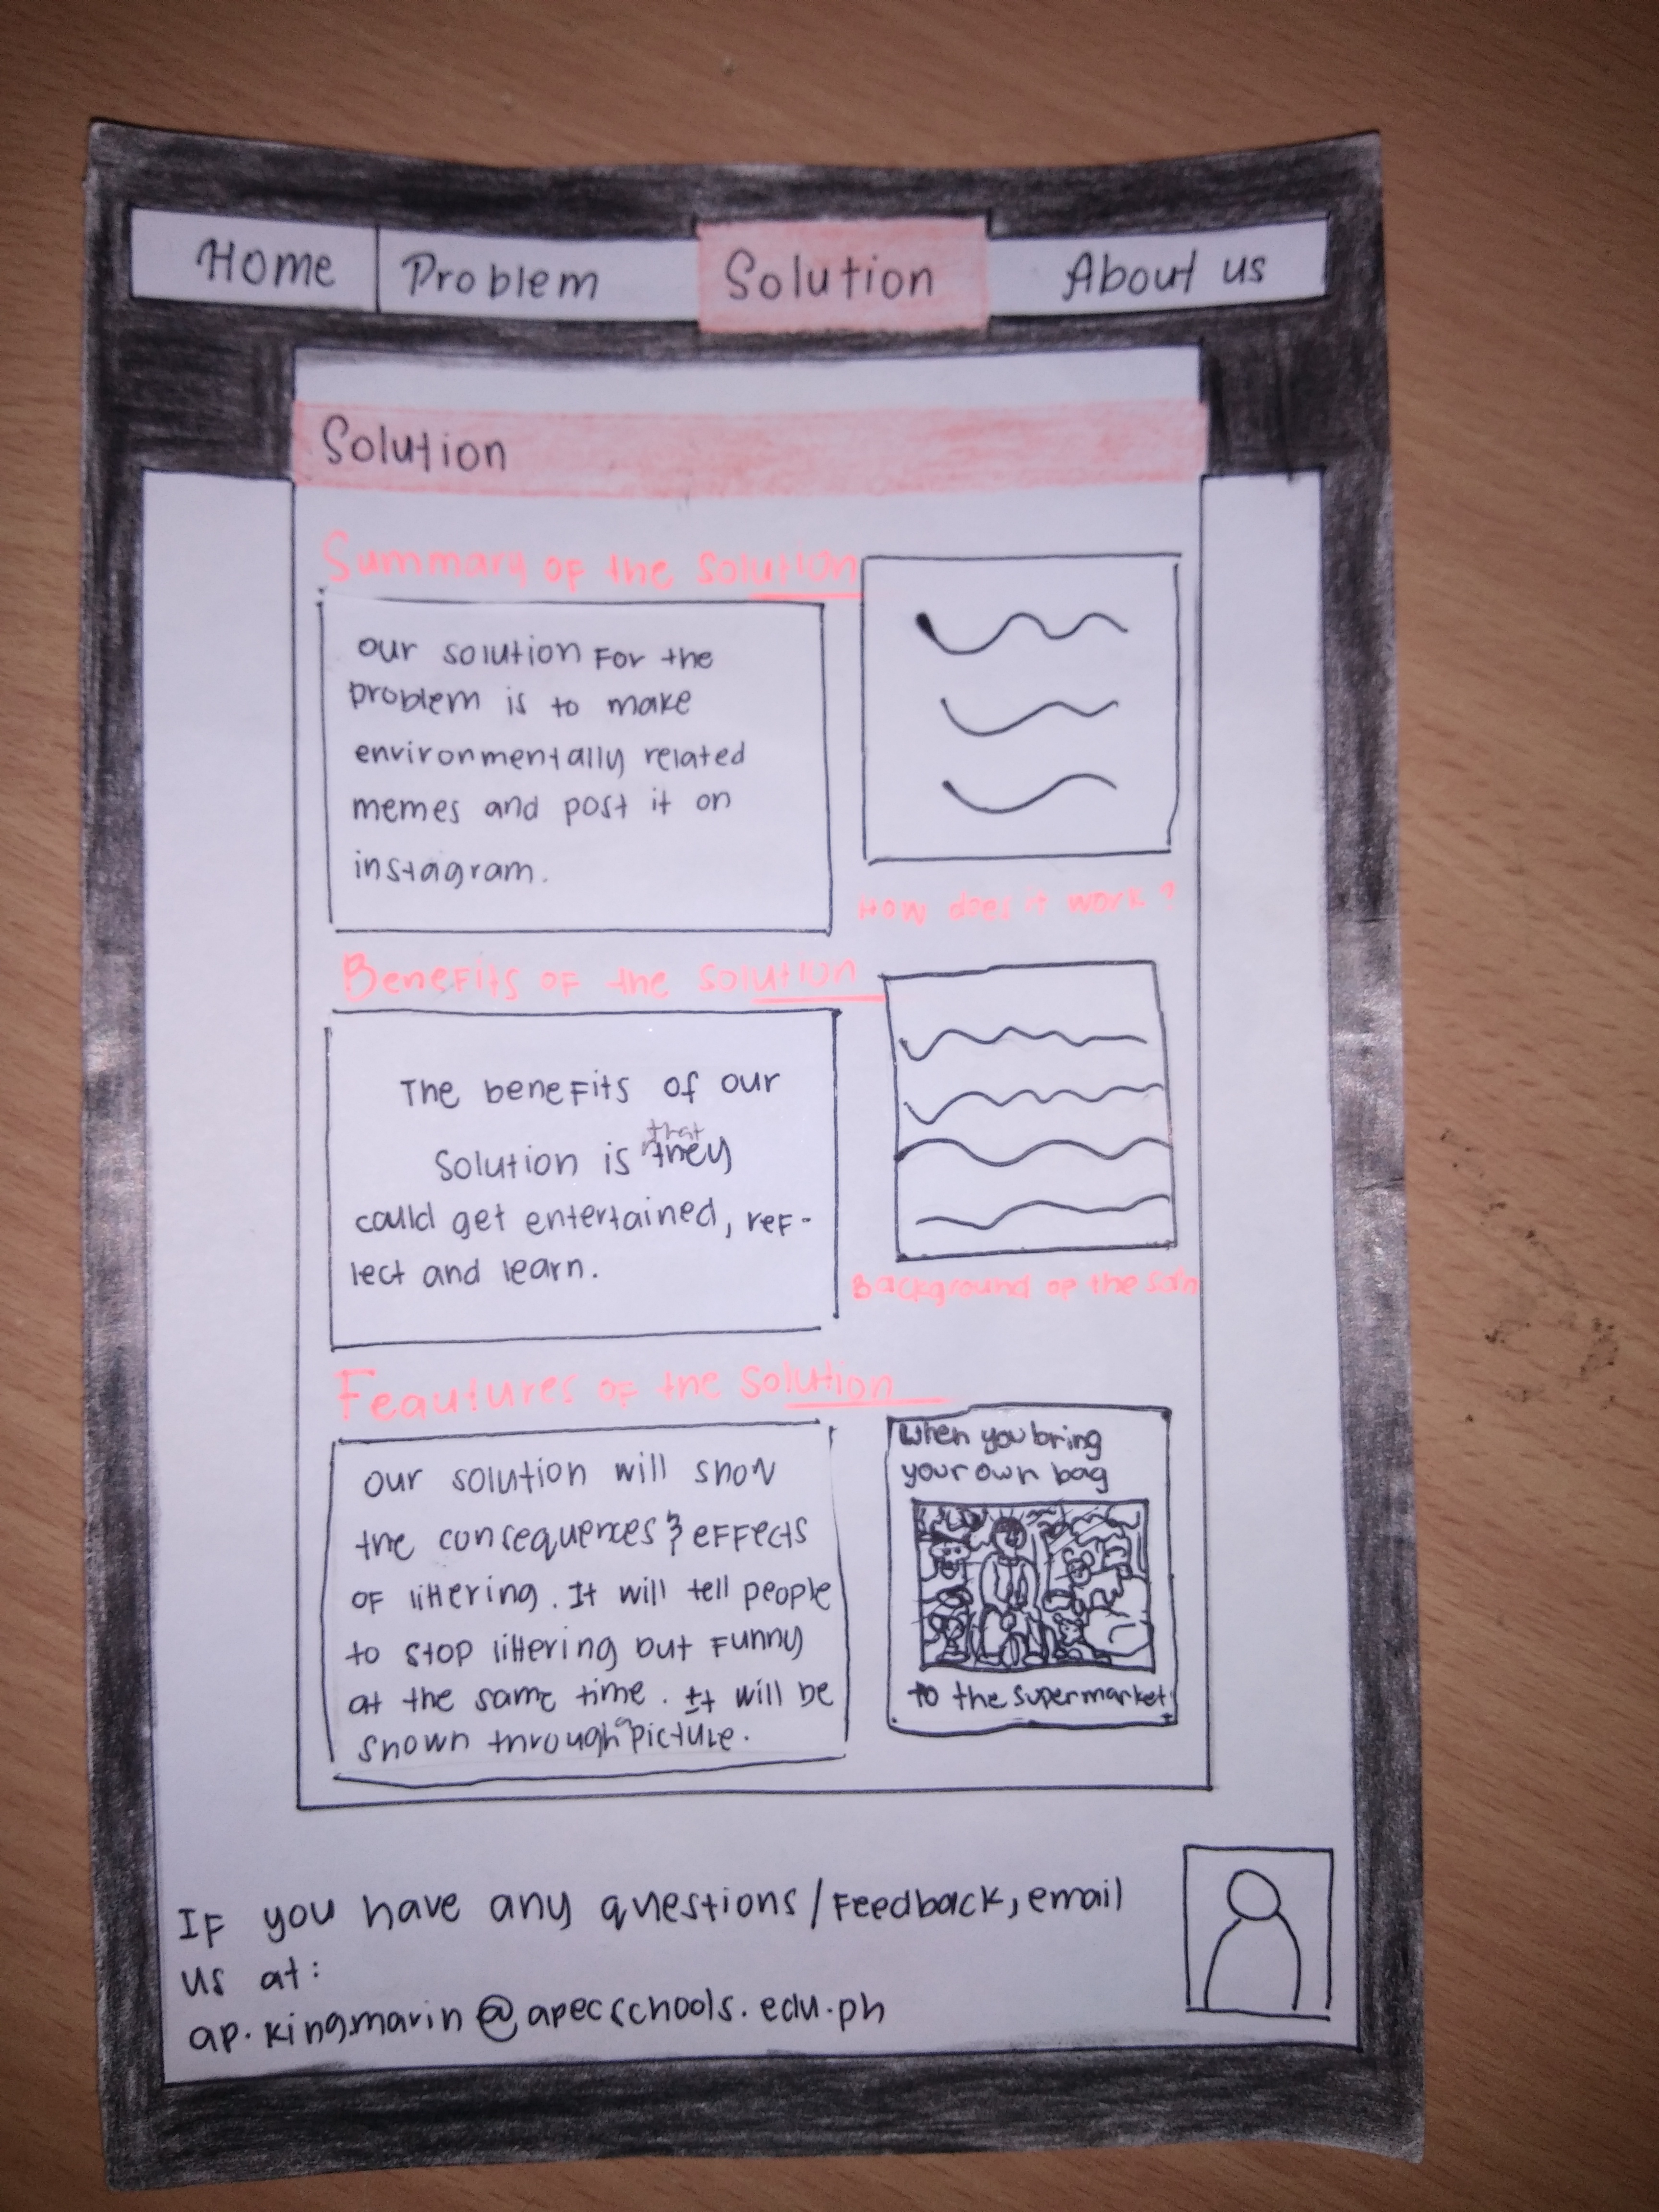 Home Problem Solution About us
Solution
Summary of the solution
our solution for the
problem is to make
environmentally related
memes and post it on
instagram.
How does it work?
Benefits of the solution
The benefits of our
solution is that they
could get entertained, ref-
lect and learn.
Background of the soln
Feautures of the solution
our solution will show
the consequences & effects
of littering. It will tell people
to stop littering but funny
at the same time. It will be
shown through a picture.
When you bring
your own bag
to the supermarket
If you have any questions/feedback, email
us at:
ap.kingmarin@apecschools.edu.ph